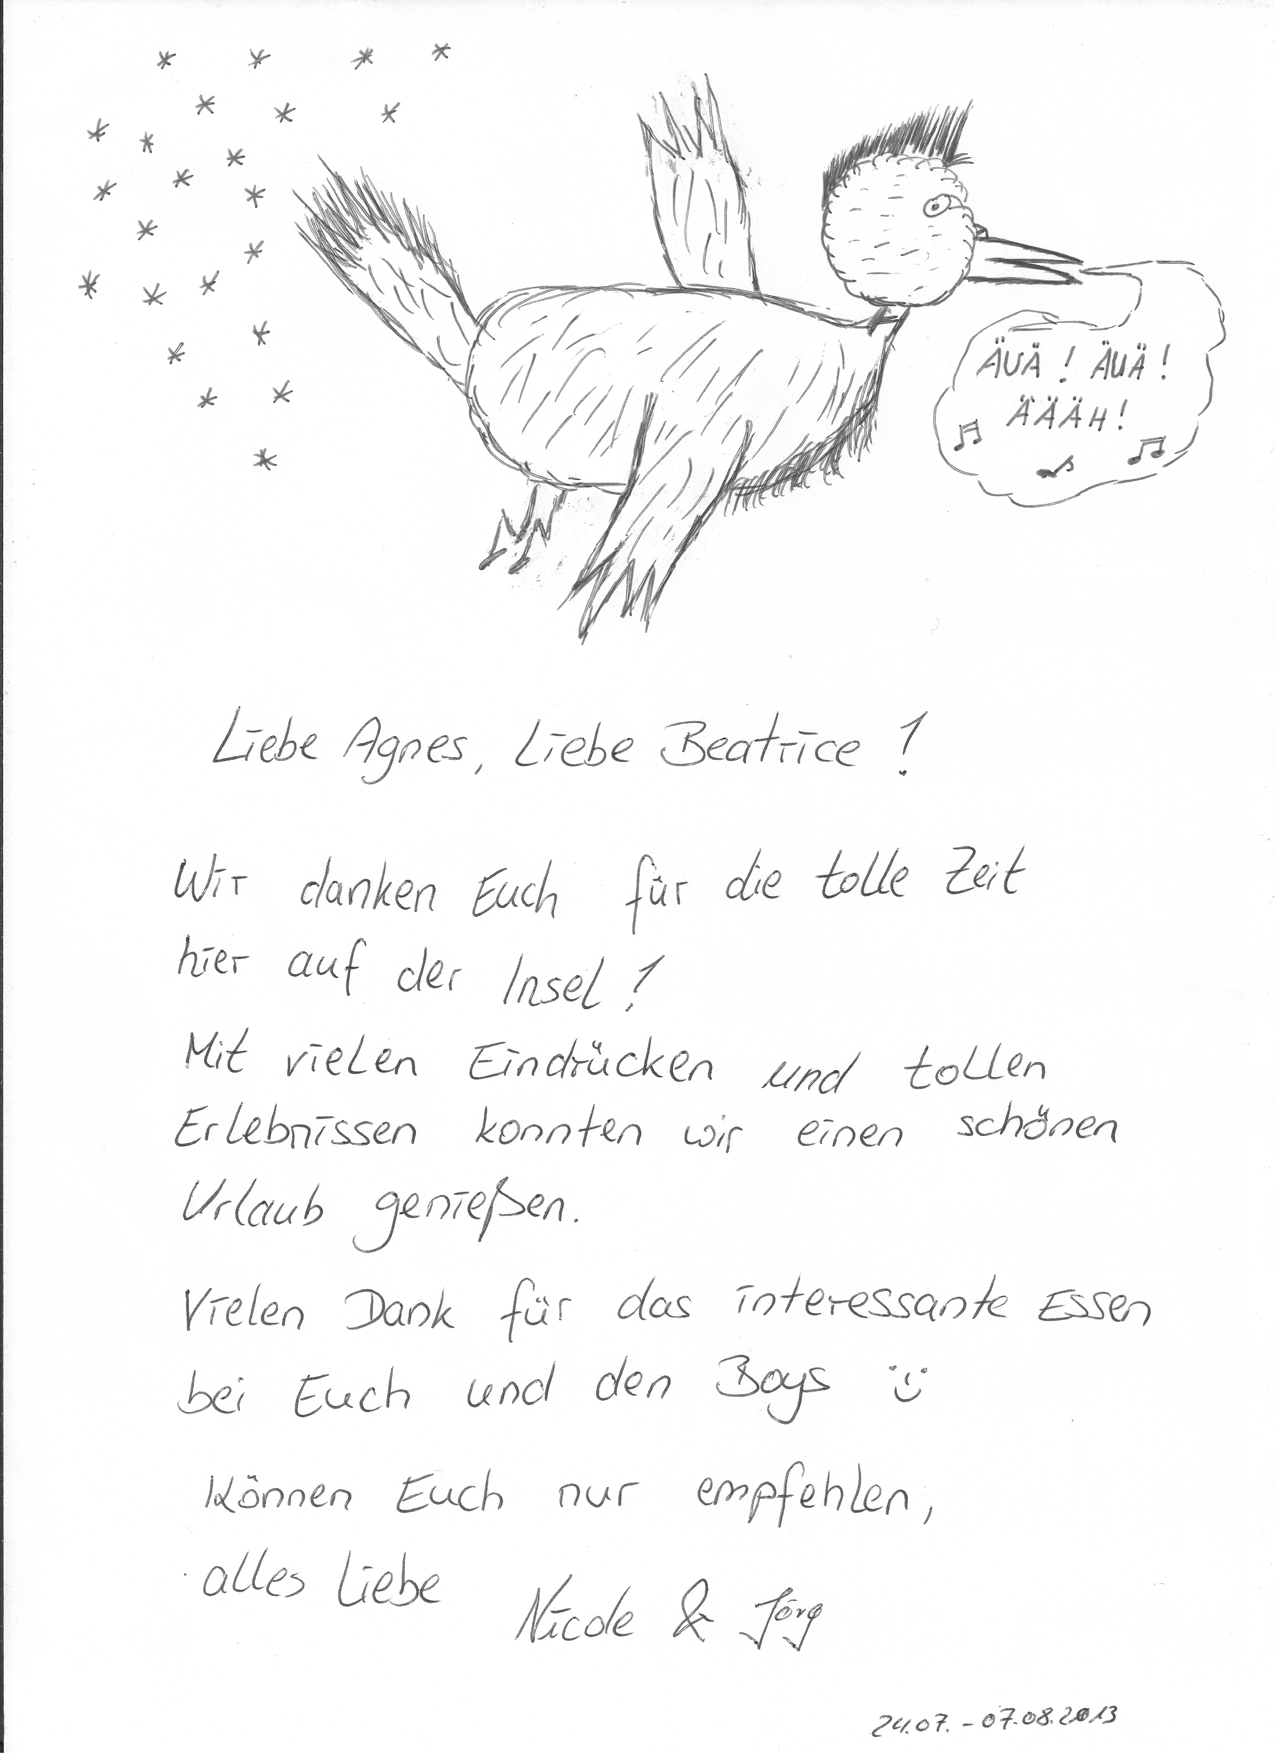 ÄUÄ! ÄUÄ!
ÄÄÄH!
Liebe Agnes, Liebe Beatrice!
Wir danken Euch für die tolle Zeit
hier auf der Insel!
Mit vielen Eindrücken und tollen
Erlebnissen konnten wir einen schönen
Urlaub genießen.
Vielen Dank für das interessante Essen
bei Euch und den Boys
Können Euch nur empfehlen,
alles Liebe
Nicole & Jörg
24.07. - 07.08.2013